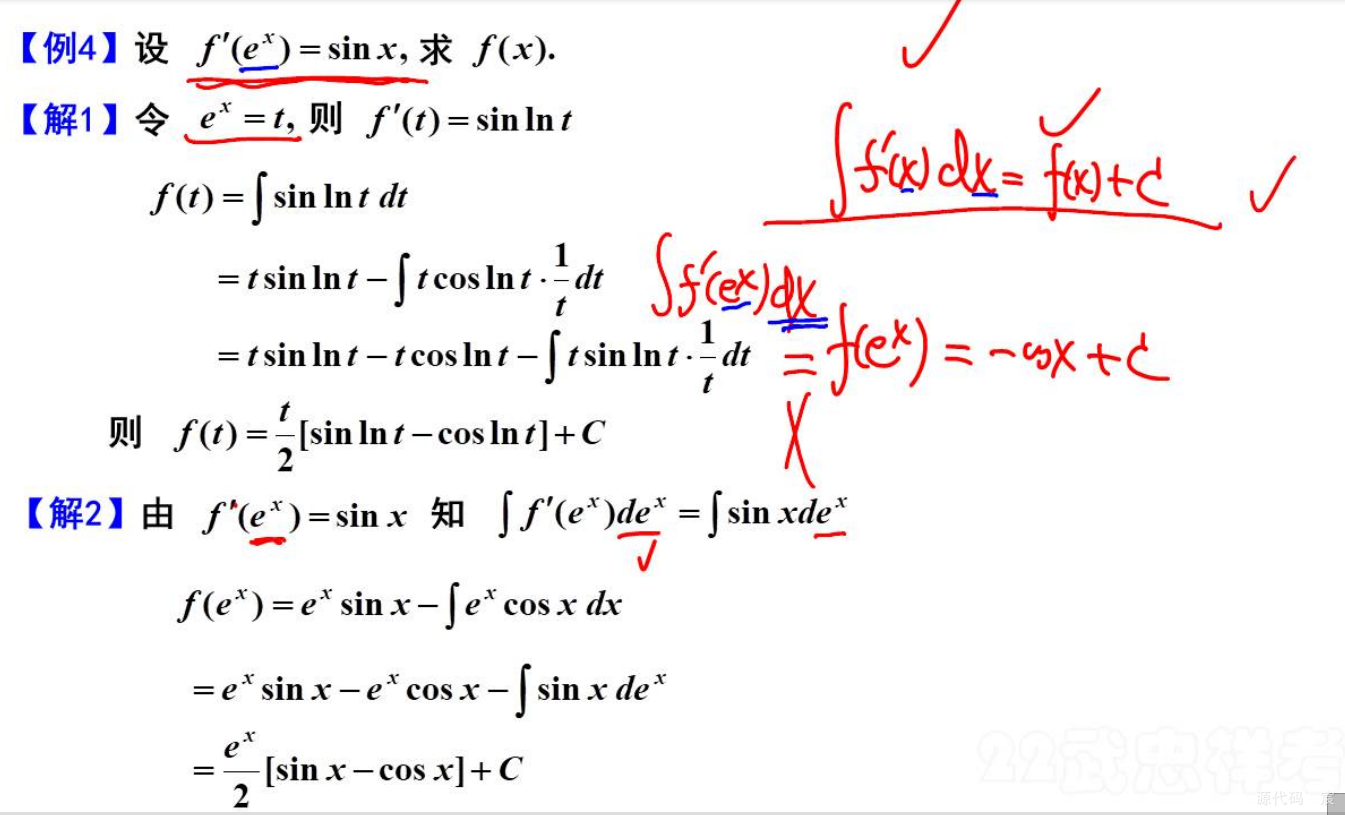 【例4】设 f′(eˣ) = sin x, 求 f(x).
【解1】令 eˣ = t, 则 f′(t) = sin ln t
∫f′(x)dx = f(x)+C
f(t) = ∫ sin ln t dt
= t sin ln t − ∫ t cos ln t · 1/t dt
∫f′(eˣ)dx
= t sin ln t − t cos ln t − ∫ t sin ln t · 1/t dt
= f(eˣ) = −cos x + C
则 f(t) = t/2 [sin ln t − cos ln t] + C
【解2】由 f′(eˣ) = sin x 知 ∫ f′(eˣ)deˣ = ∫ sin x deˣ
f(eˣ) = eˣ sin x − ∫ eˣ cos x dx
= eˣ sin x − eˣ cos x − ∫ sin x deˣ
= eˣ/2 [sin x − cos x] + C
22武忠祥考
源代码